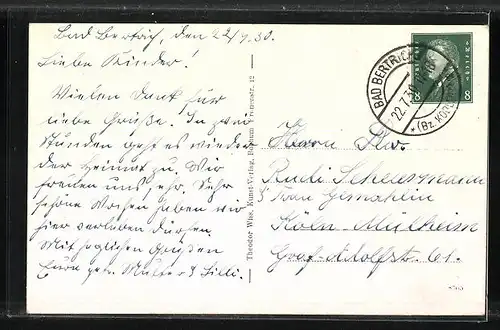 Bad Bertrich, den 22/7.30.
Liebe Kinder!
Vielen Dank für
liebe Grüße. In zwei
Stunden geht es wieder
der Heimat zu. Wir
freuen uns sehr. Sehr
schöne Wochen haben wir
hier verleben dürfen.
Mit herzlichen Grüßen
Eure Mutter & Lilli.
Theodor Wiss, Kunst-Verlag, Bochum 12
BAD BERTRICH
22.7.30
* (Bz. KOBLENZ)
8 8
Herrn
Rudi Scheuermann
Frau Gemahlin
Köln-Mülheim
Graf-Adolfstr. 61.